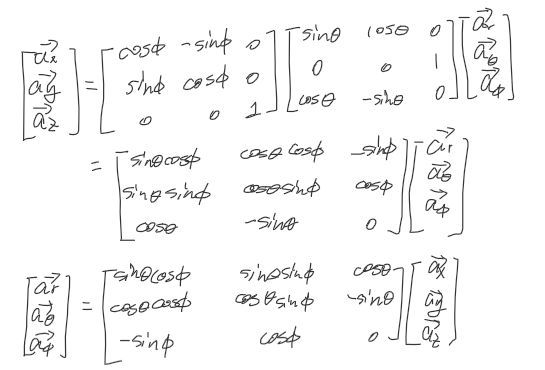 [a⃗x; a⃗y; a⃗z] = [cosφ -sinφ 0; sinφ cosφ 0; 0 0 1] [sinθ cosθ 0; 0 0 1; cosθ -sinθ 0] [a⃗r; a⃗θ; a⃗φ]
= [sinθcosφ cosθcosφ -sinφ; sinθsinφ cosθsinφ cosφ; cosθ -sinθ 0] [a⃗r; a⃗θ; a⃗φ]
[a⃗r; a⃗θ; a⃗φ] = [sinθcosφ sinθsinφ cosθ; cosθcosφ cosθsinφ -sinθ; -sinφ cosφ 0] [a⃗x; a⃗y; a⃗z]